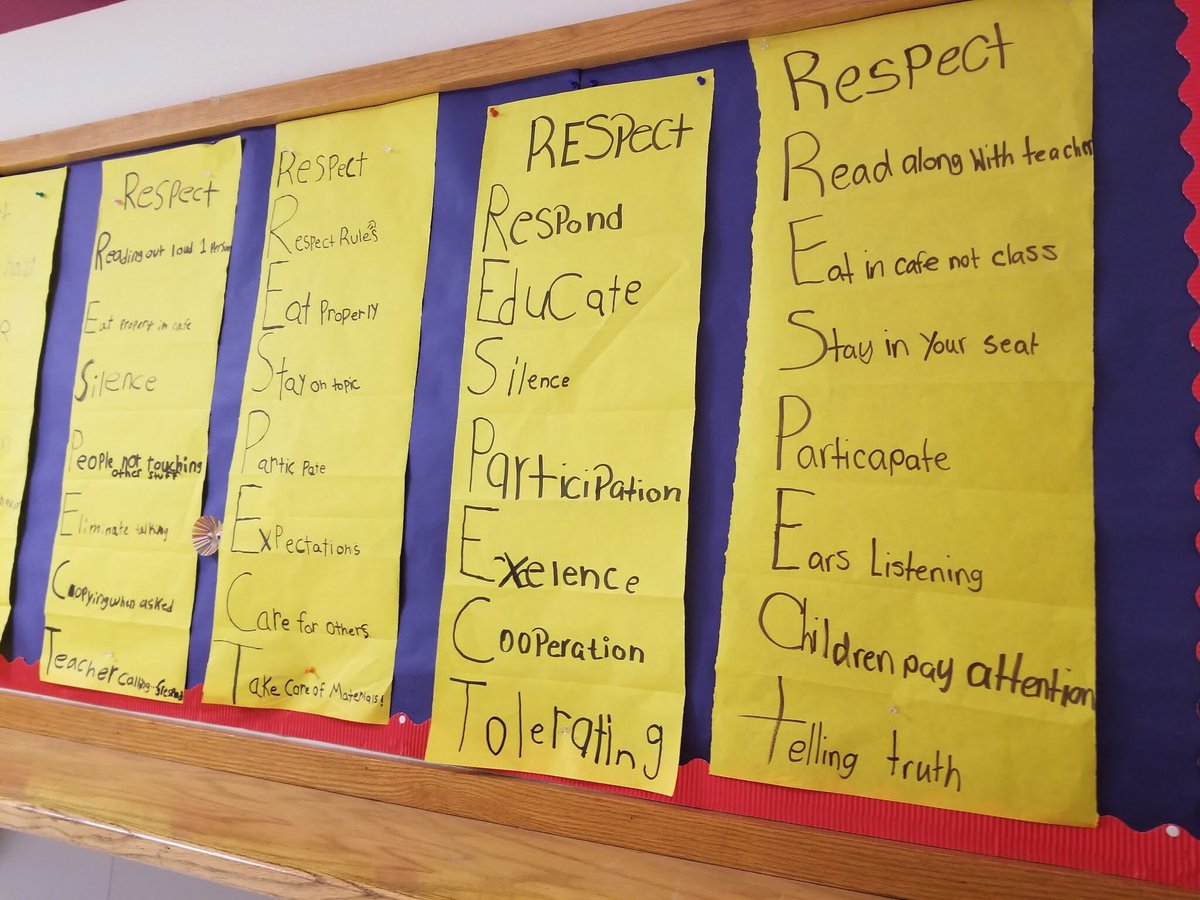 Respect
Reading out loud 1 Person
Eat properly in cafe
Silence
People not touching
other stuff
Eliminate talking
Copying when asked
Teacher calling
Respect
Respect Rules
Eat Properly
Stay on topic
Partic Pate
Expectations
Care for others
Take Care of Materials!
RESPect
Respond
Educate
Silence
Participation
Exelence
Cooperation
Tolerating
Respect
Read along with teacher
Eat in cafe not class
Stay in Your seat
Particapate
Ears Listening
Children pay attention
telling truth